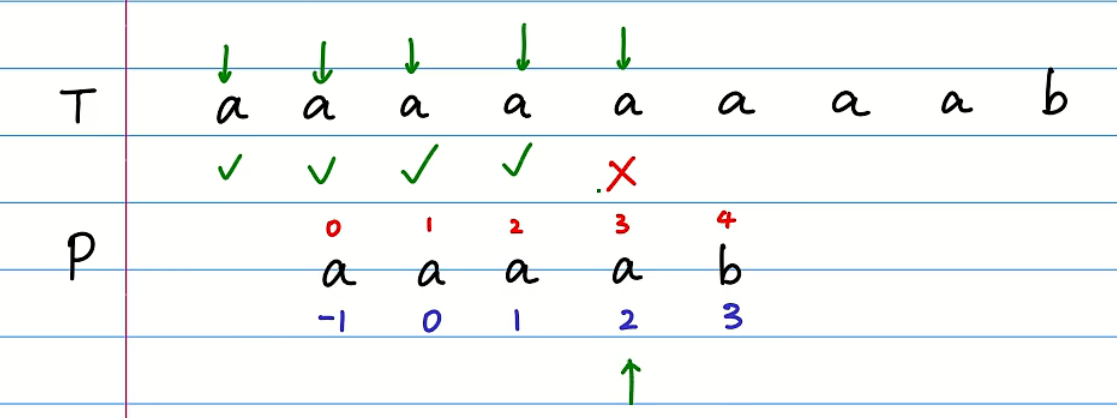 T a a a a a a a a b
✓ ✓ ✓ ✓ ✗
0 1 2 3 4
P a a a a b
-1 0 1 2 3